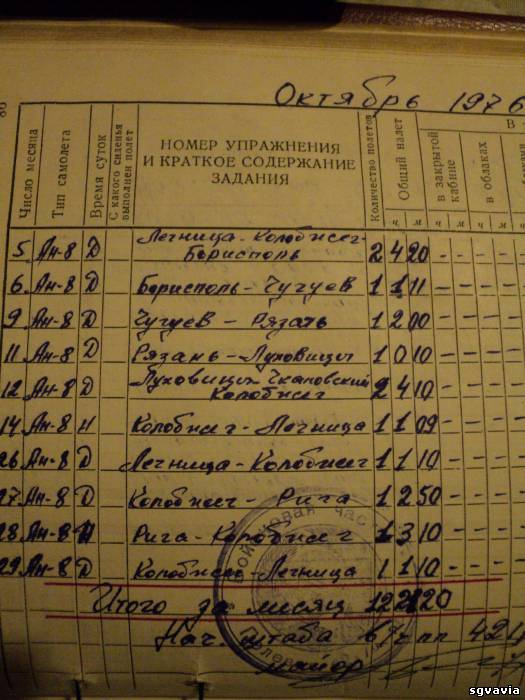 Октябрь 1976
Число месяца
Тип самолета
Время суток
С какого сиденья выполнен полет
НОМЕР УПРАЖНЕНИЯ
И КРАТКОЕ СОДЕРЖАНИЕ
ЗАДАНИЯ
Количество полетов
Общий налет
В
в закрытой кабине
в облаках
ч м ч м ч
5 Ан-8 Д Легница-Колобжег-
Борисполь 2 4 20 - - - -
6 Ан-8 Д Борисполь-Чугуев 1 1 11 - - - -
9 Ан-8 Д Чугуев-Рязань 1 2 00 - - - -
11 Ан-8 Д Рязань-Луховицы 1 0 10 - - - -
12 Ан-8 Д Луховицы-Чкаловский
Колобжег 2 4 10 - - - -
14 Ан-8 Н Колобжег-Легница 1 1 09 - - - -
26 Ан-8 Д Легница-Колобжег 1 1 10 - - - -
27 Ан-8 Д Колобжег-Рига 1 2 50 - - - -
28 Ан-8 Н Рига-Колобжег 1 3 10 - - - -
29 Ан-8 Д Колобжег-Легница 1 1 10 - - - -
Итого за месяц 12 21 20 - - - -
Нач. штаба в/ч пп
майор
sgvavia